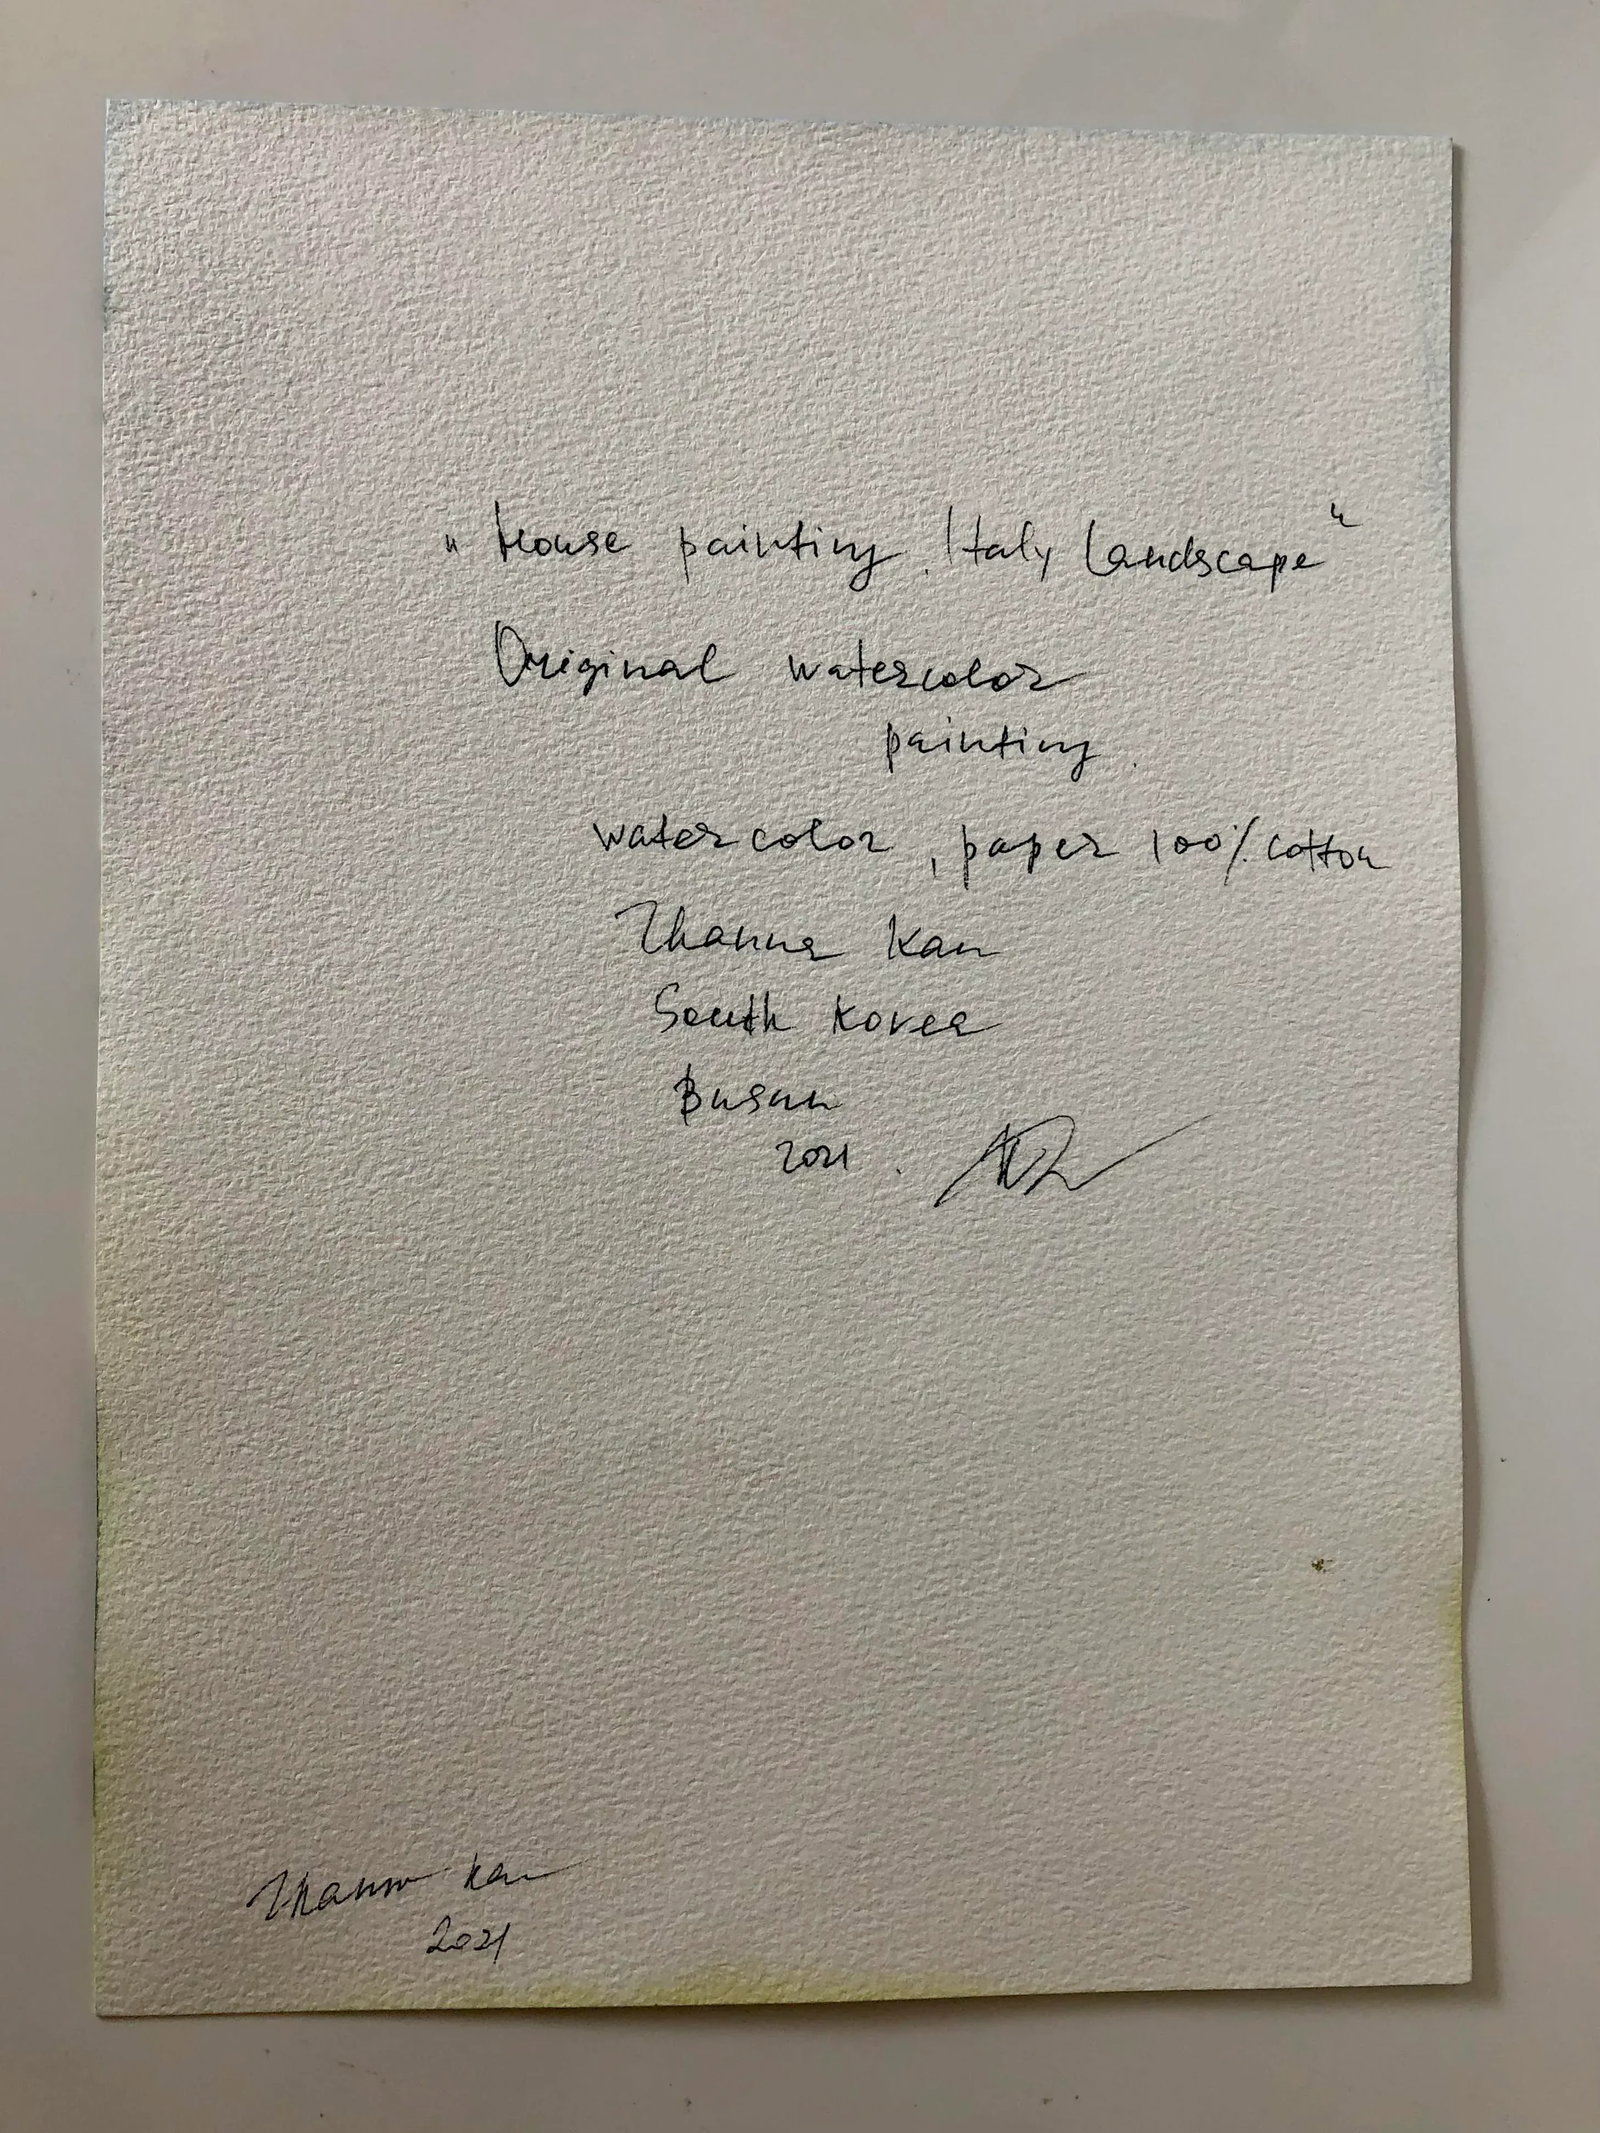 "House painting. Italy Landscape"
Original watercolor
painting.
watercolor, paper 100% cotton
Zhanna Kan
South Korea
Busan
2021.
Zhanna Kan
2021